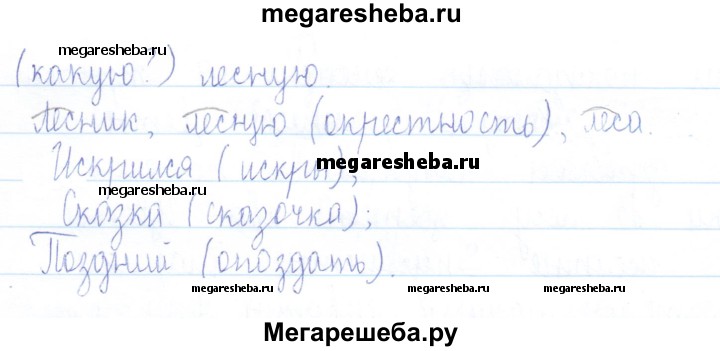 megaresheba.ru
megaresheba.ru megaresheba.ru
(какую?) лесную.
Лесник, лесную (окрестность), леса.
Искрился (искры);
megaresheba.ru
megaresheba.ru
Сказка (сказочка);
Поздний (опоздать).
megaresheba.ru megaresheba.ru megaresheba.ru
Мегарешеба.ру